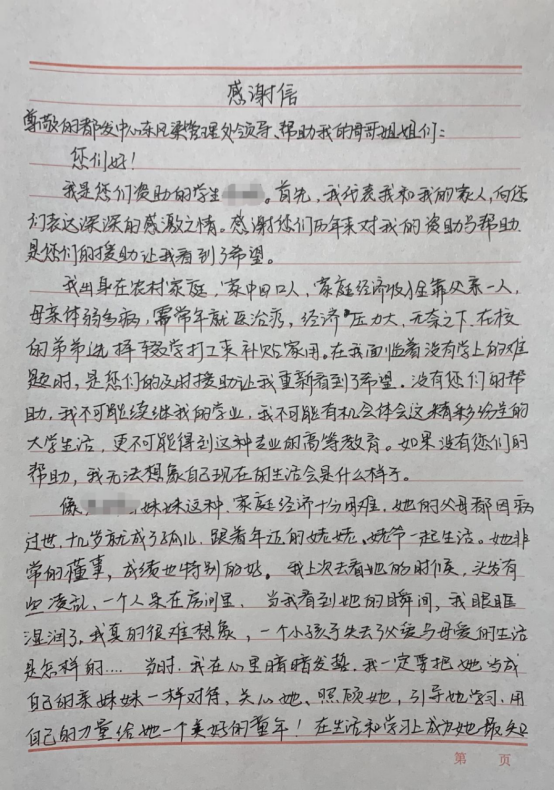 感谢信
尊敬的都发中心东风渠管理处领导、帮助我的哥哥姐姐们:
您们好!
我是您们资助的学生。首先,我代表我和我的家人,向您
们表达深深的感激之情。感谢您们历年来对我的资助与帮助,
是您们的援助让我看到了希望。
我出身在农村家庭,家中四口人,家庭经济收入全靠父亲一人,
母亲体弱多病,需常年就医治疗,经济压力大,无奈之下,在校
的弟弟选择辍学打工来补贴家用。在我面临着没有学上的难
题时,是您们的及时援助让我重新看到了希望。没有您们的帮
助,我不可能续继我的学业,我不可能有机会体会这精彩纷呈的
大学生活,更不可能得到这种专业的高等教育。如果没有您们的
帮助,我无法想象自己现在的生活会是什么样子。
像妹妹这种,家庭经济十分困难,她的父母都因病
过世,十几岁就成了孤儿,跟着年迈的姥姥、姥爷一起生活。她非
常的懂事,成绩也特别的好。我上次去看她的时候,头发有
些凌乱,一个人呆在房间里,当我看到她的瞬间,我眼眶
湿润了,我真的很难想象,一个小孩子失去了父爱与母爱的生活
是怎样的....当时,我在心里暗暗发誓,我一定要把她当成
自己的亲妹妹一样对待,关心她、照顾她,引导她学习,用
自己的力量给她一个美好的童年!在生活和学习上成为她最知
第 页